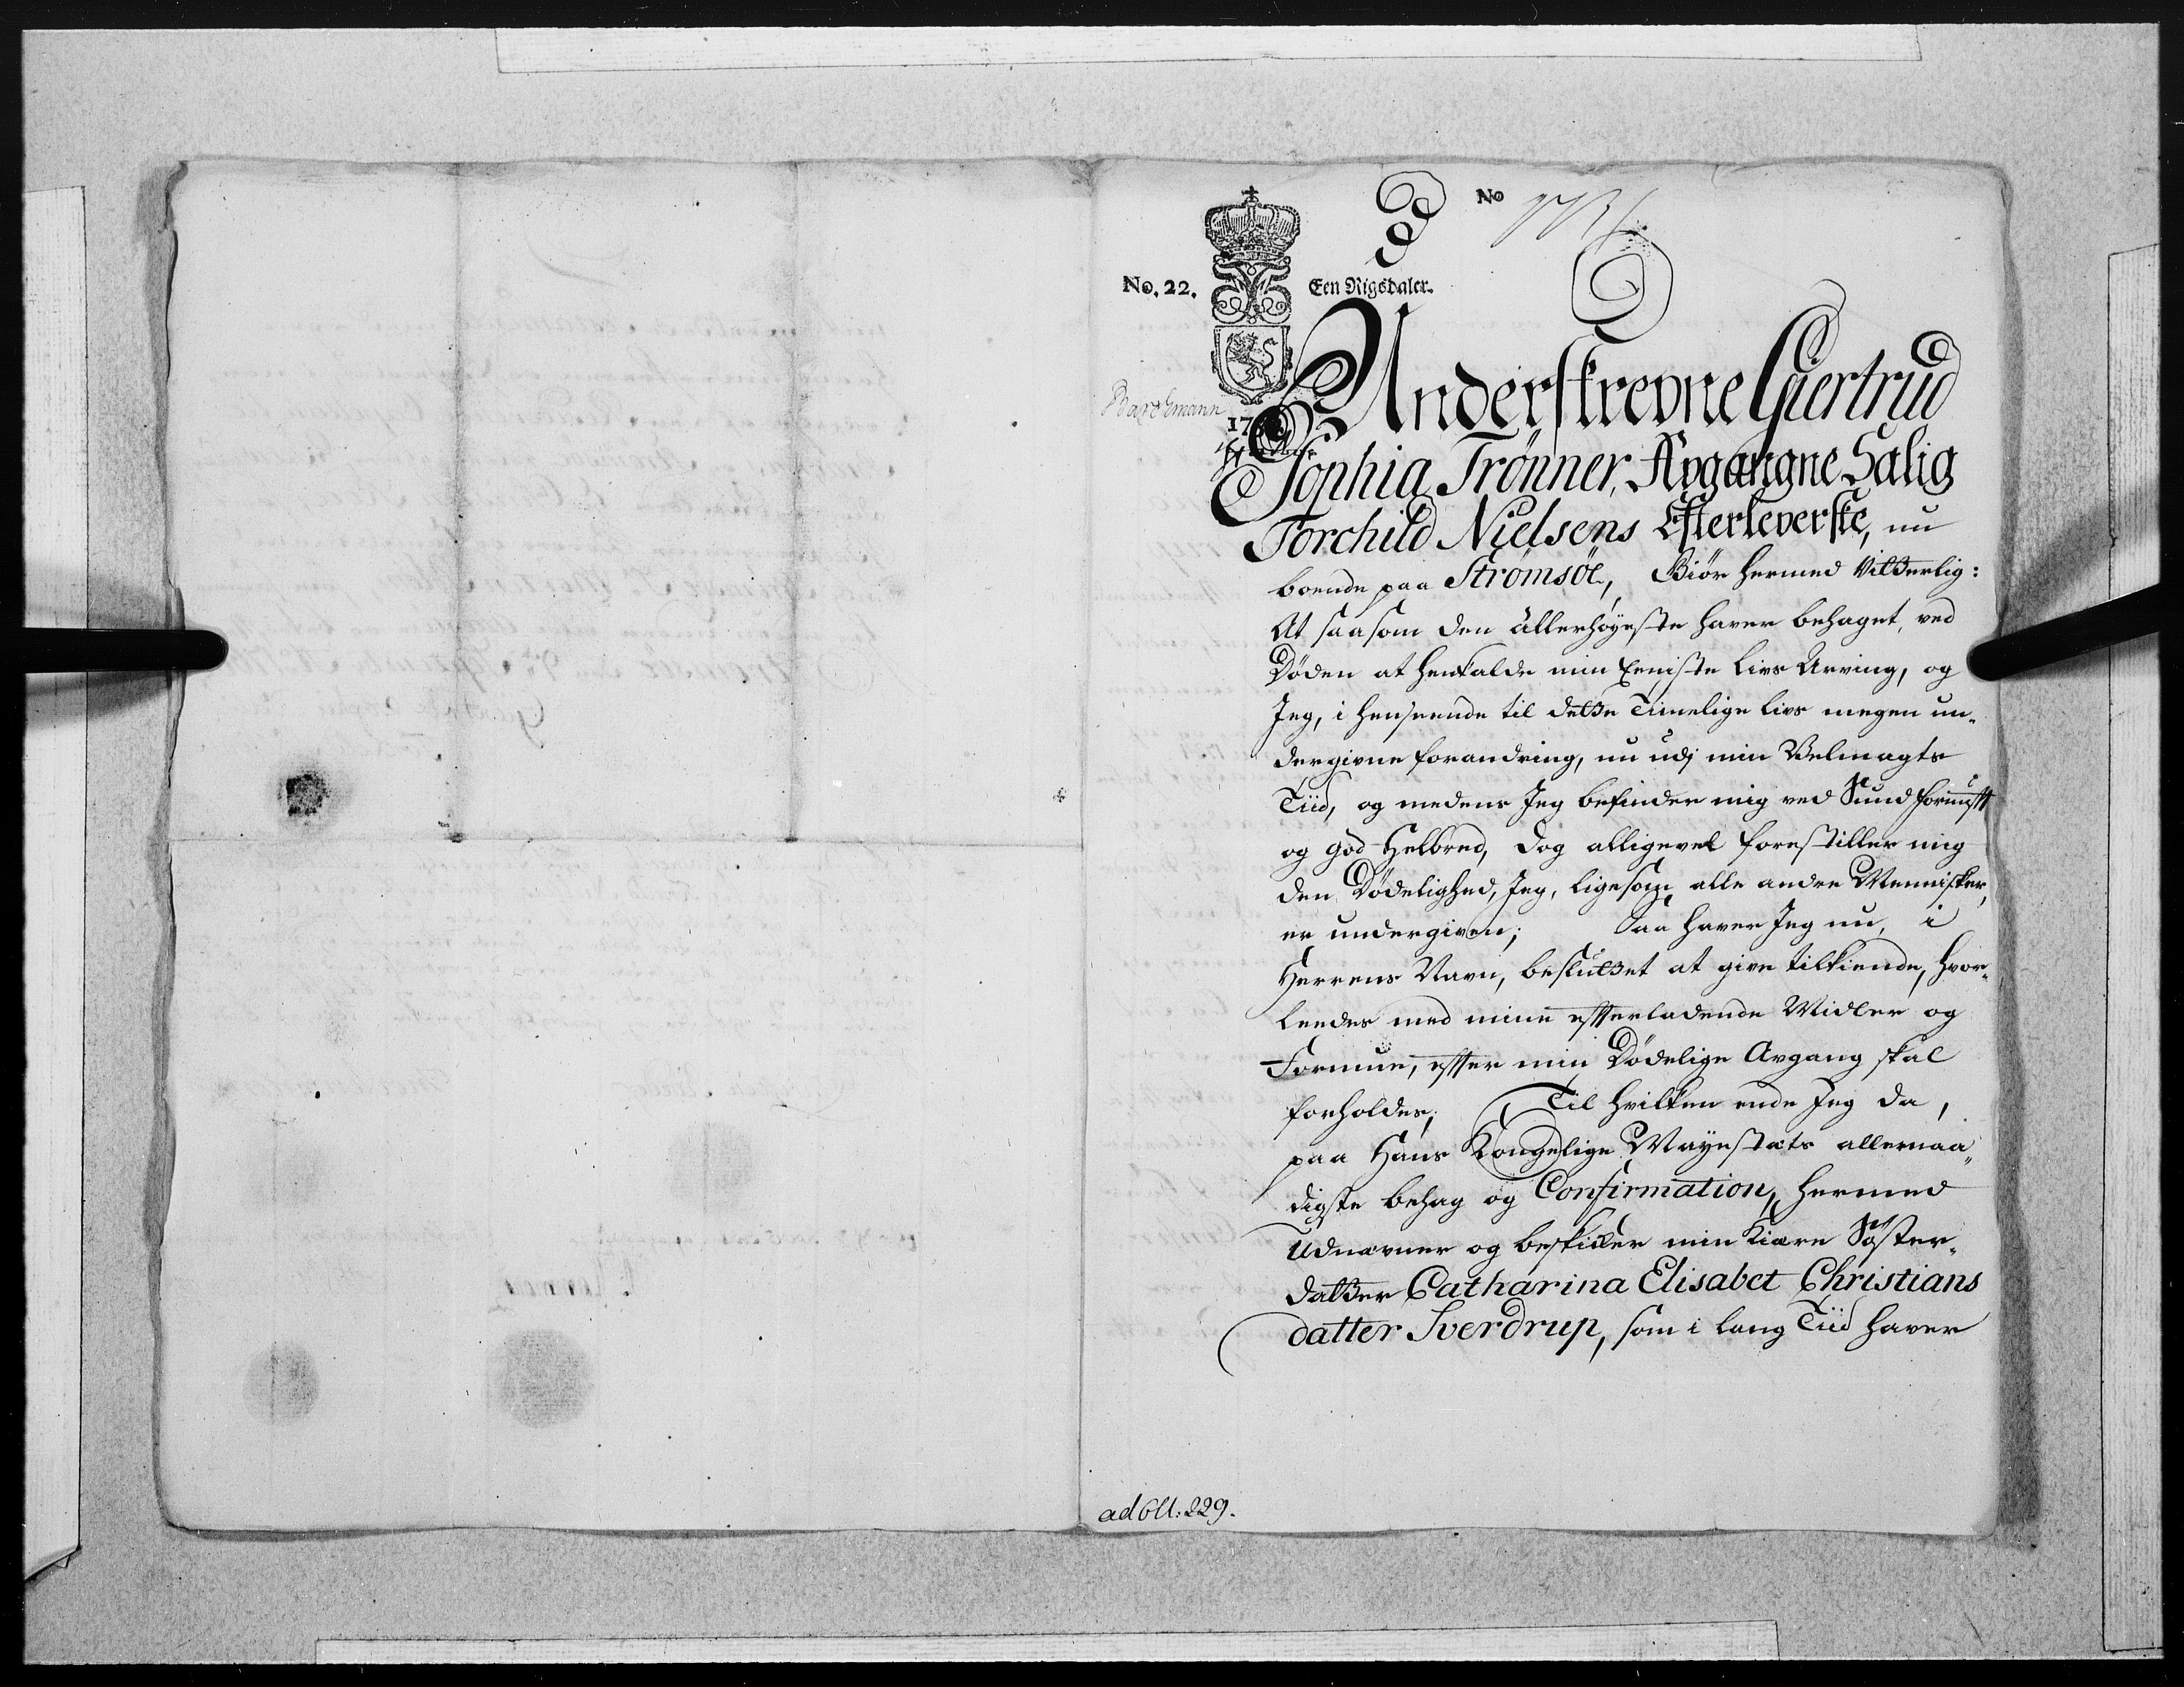 No
No. 22.
Een Rigsdaler.
Underskrevne Giertrud
Bartzmann
17
Sophia Trønner, Avgangne Salig
Torchild Nielsens Efterleverske, nu
boende paa Strømsöe, Giör hermed Vitterlig:
At saasom den allerhøyeste haver behaget, ved
Døden at henkalde min Eeniste Livs Arving, og
Jeg, i henseende til dette Timelige Livs megen un-
dergivne forandring, nu udj min Velmagts
Tiid, og medens Jeg befinder mig ved Sund fornuft
og god Helbred, dog alligevel forestiller mig
den Dødelighed, Jeg, ligesom alle andre Mennisker,
er undergiven; Saa haver Jeg nu, i
Herrens Navn, besluttet at give tilkiende, hvor-
leedes med mine efterladende Midler og
Formue, efter min Dødelige Avgang skal
forholdes; Til hvilken ende Jeg da,
paa Hans Kongelige Mayestæts allernaa-
digste behag og Confirmation, hermed
Udnævner og beskikker min Kiære Søster-
datter Catharina Elisabet Christians
datter Sverdrup, som i lang Tiid haver
ad 611: 229.